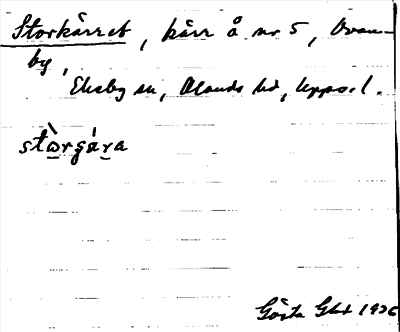 Storkärret, kärr å nr 5, Ovan-
by,
Ekeby sn, Olands hd, Upps. l.
stòrgára
Gösta Gbd 1936